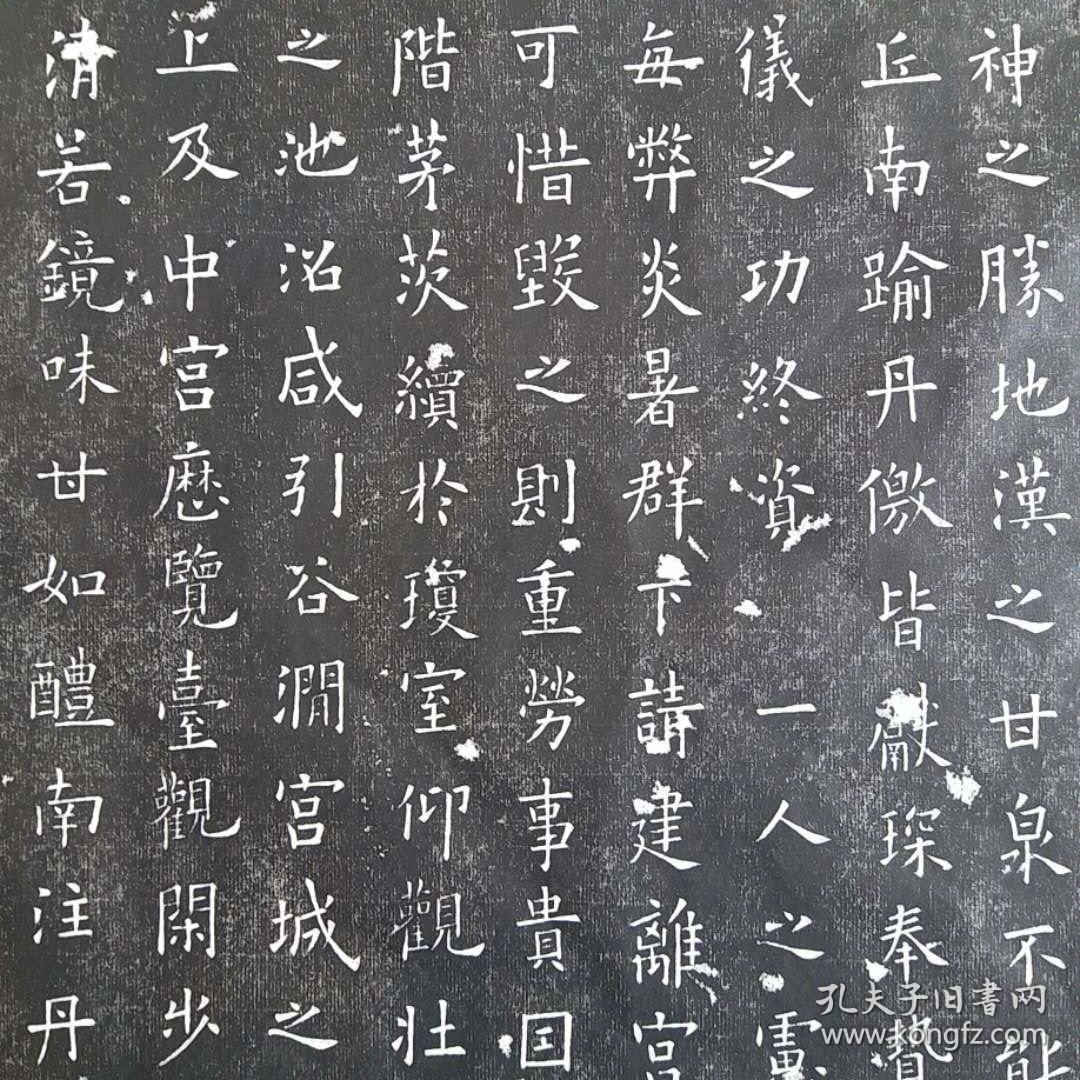 神之勝地漢之甘泉不能
丘南踰丹儌皆獻琛奉贄
儀之功終資一人之慮
每弊炎暑群下請建離宮
可惜毀之則重勞事貴因
階茅茨續於瓊室仰觀壯
之池沼咸引谷澗宮城之
上及中宮歷覽臺觀閑步
清若鏡味甘如醴南注丹
孔夫子旧書网
www.kongfz.com